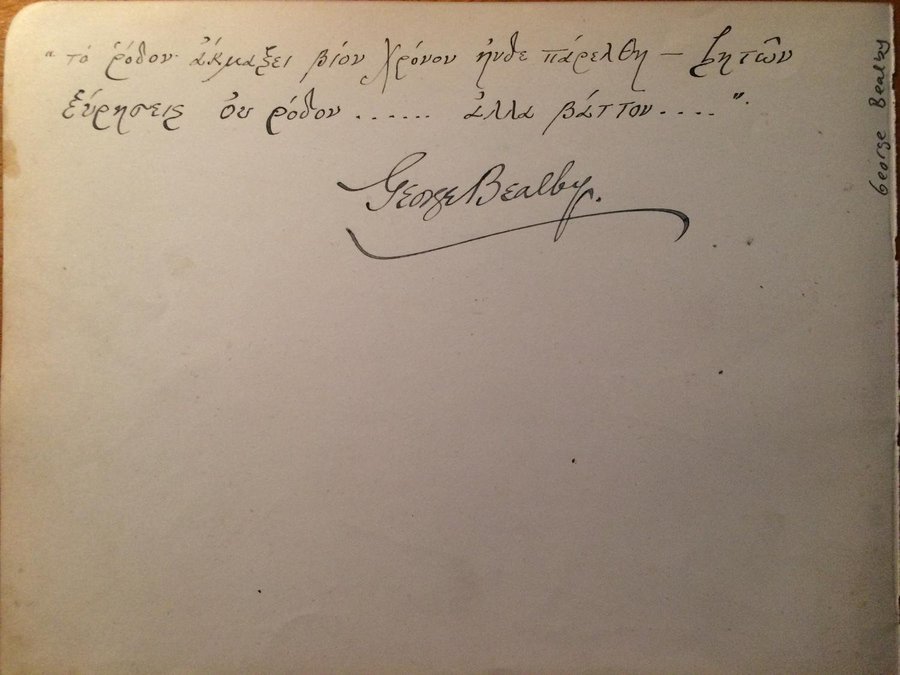 "τό ῥόδον ἀκμαξει βίον χρόνον ἠνδε πάρελθη — ζητῶν
ἑύρησεις ὀυ ρόδον ...... ἀλλα βάττον ....".
George Bealby.
George Bealby